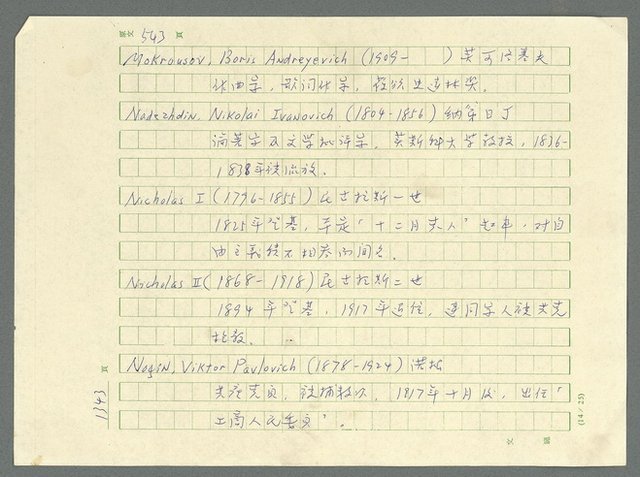 原文 543 頁
Mokrousov, Boris Andreyevich (1909- )莫可洛塞夫
作曲家，歌詞作家，獲欽史達林奖.
Nadezhdin, Nikolai Ivanovich (1804-1856)纳
文学批评家，莫斯科大学教授，1836-
1838年被流放.
Nicholas I (1796-1855)尼古拉斯一世
1825年登基，平定「十二月
由主義
Nicholas II (1868-1918)尼古拉斯二世
1894年登基，1917年退位，連同家人被共党
Nogin, Viktor Pavlovich (1878-1924)
共產党員，被捕数次，1917年十月後，出任「
工商人民委員」.
1343 頁
(14/25)